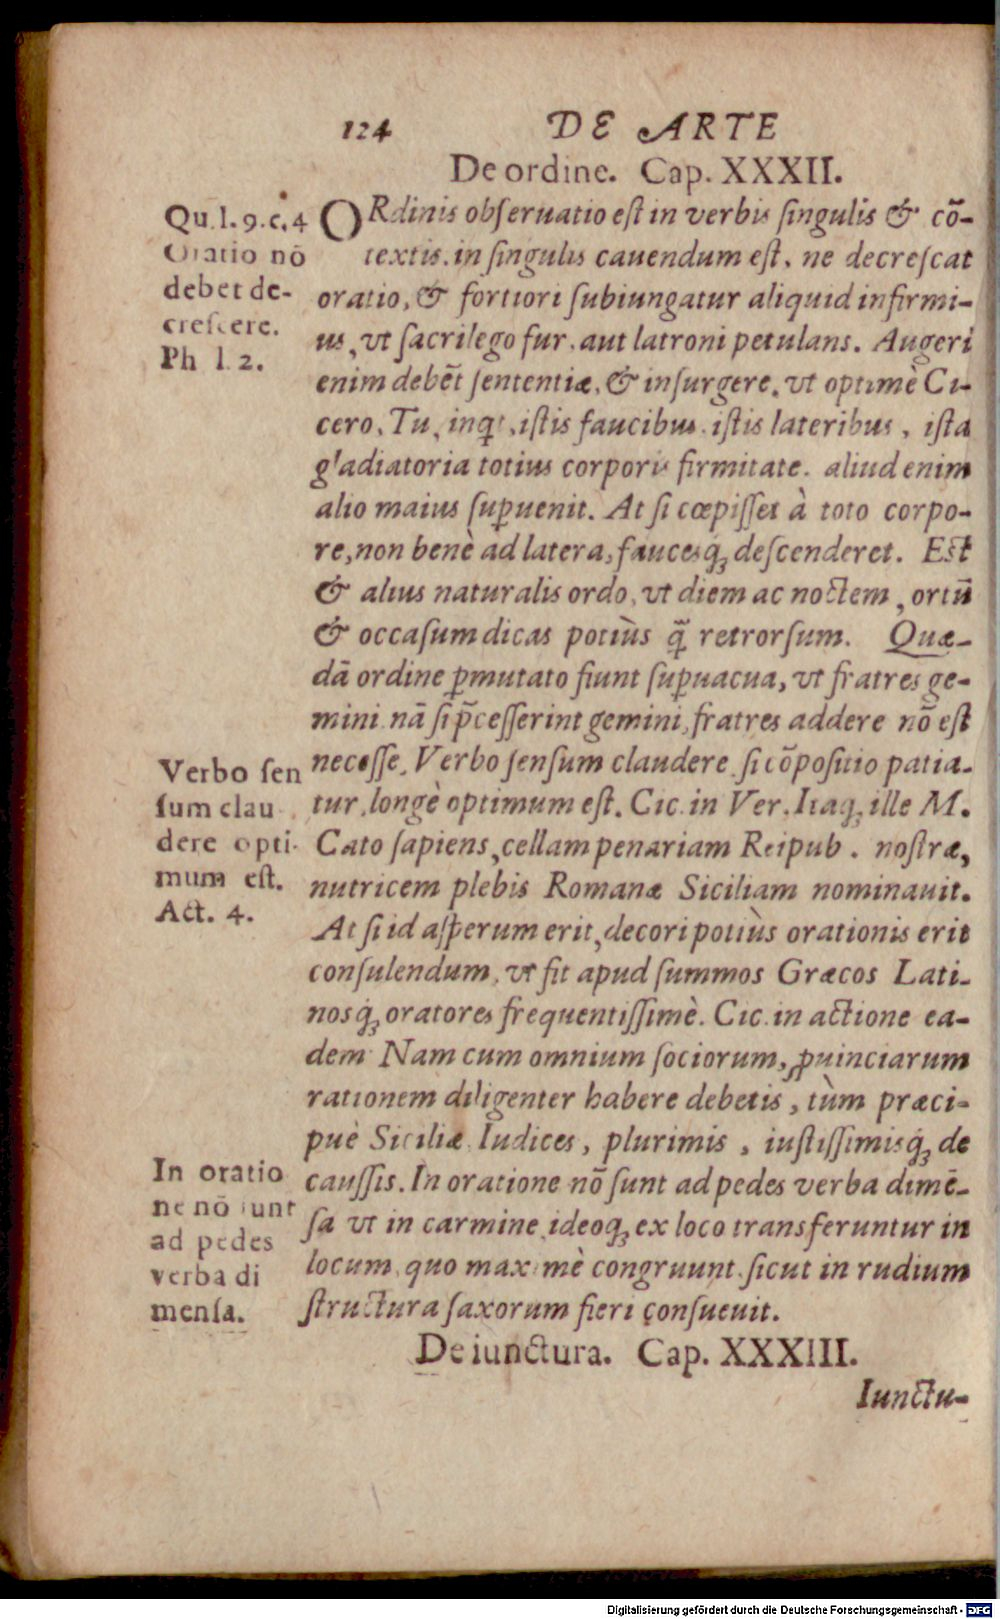 124 DE ARTE
De ordine. Cap. XXXII.
ORdinis obſeruatio eſt in verbis ſingulis & cō-
textis. in ſingulis cauendum eſt, ne decreſcat
oratio, & fortiori ſubiungatur aliquid infirmi-
us, vt ſacrilego fur, aut latroni petulans. Augeri
enim debēt ſententiæ, & inſurgere, vt optimè Ci-
cero, Tu, inqt, iſtis faucibus, iſtis lateribus, iſta
gladiatoria totius corporis firmitate. aliud enim
alio maius ſuꝑuenit. At ſi cœpiſſet à toto corpo-
re, non benè ad latera, fauceſq́; deſcenderet. Eſt
& alius naturalis ordo, vt diem ac noctem, ortū
& occaſum dicas potiùs q̃ retrorſum. Quæ-
dā ordine ꝑmutato fiunt ſuꝑuacua, vt fratres ge-
mini. nā ſi p̄ceſſerint gemini, fratres addere nō eſt
neceſſe. Verbo ſenſum claudere, ſi cōpoſitio patia-
tur, longè optimum eſt. Cic. in Ver. Itaq; ille M.
Cato ſapiens, cellam penariam Reipub. noſtræ,
nutricem plebis Romanæ Siciliam nominauit.
At ſi id aſꝑerum erit, decori potiùs orationis erit
conſulendum, vt fit apud ſummos Græcos Lati-
noſq́; oratores frequentiſſimè. Cic. in actione ea-
dem Nam cum omnium ſociorum, ꝓuinciarum
rationem diligenter habere debetis, tùm præci-
puè Siciliæ Iudices, plurimis, iuſtiſſimiſq́; de
cauſſis. In oratione nō ſunt ad pedes verba dimē-
ſa vt in carmine, ideoq; ex loco transferuntur in
locum, quo maximè congruunt, ſicut in rudium
ſtructura ſaxorum fieri conſueuit.
De iunctura. Cap. XXXIII.
Iunctu-
Qu. l. 9. c. 4
Oratio nō
debet de-
creſcere.
Ph l. 2.
Verbo ſen
ſum clau
dere opti-
mum eſt.
Act. 4.
In oratio
ne nō ſunt
ad pedes
verba di
menſa.
Digitalisierung gefördert durch die Deutsche Forschungsgemeinschaft - DFG